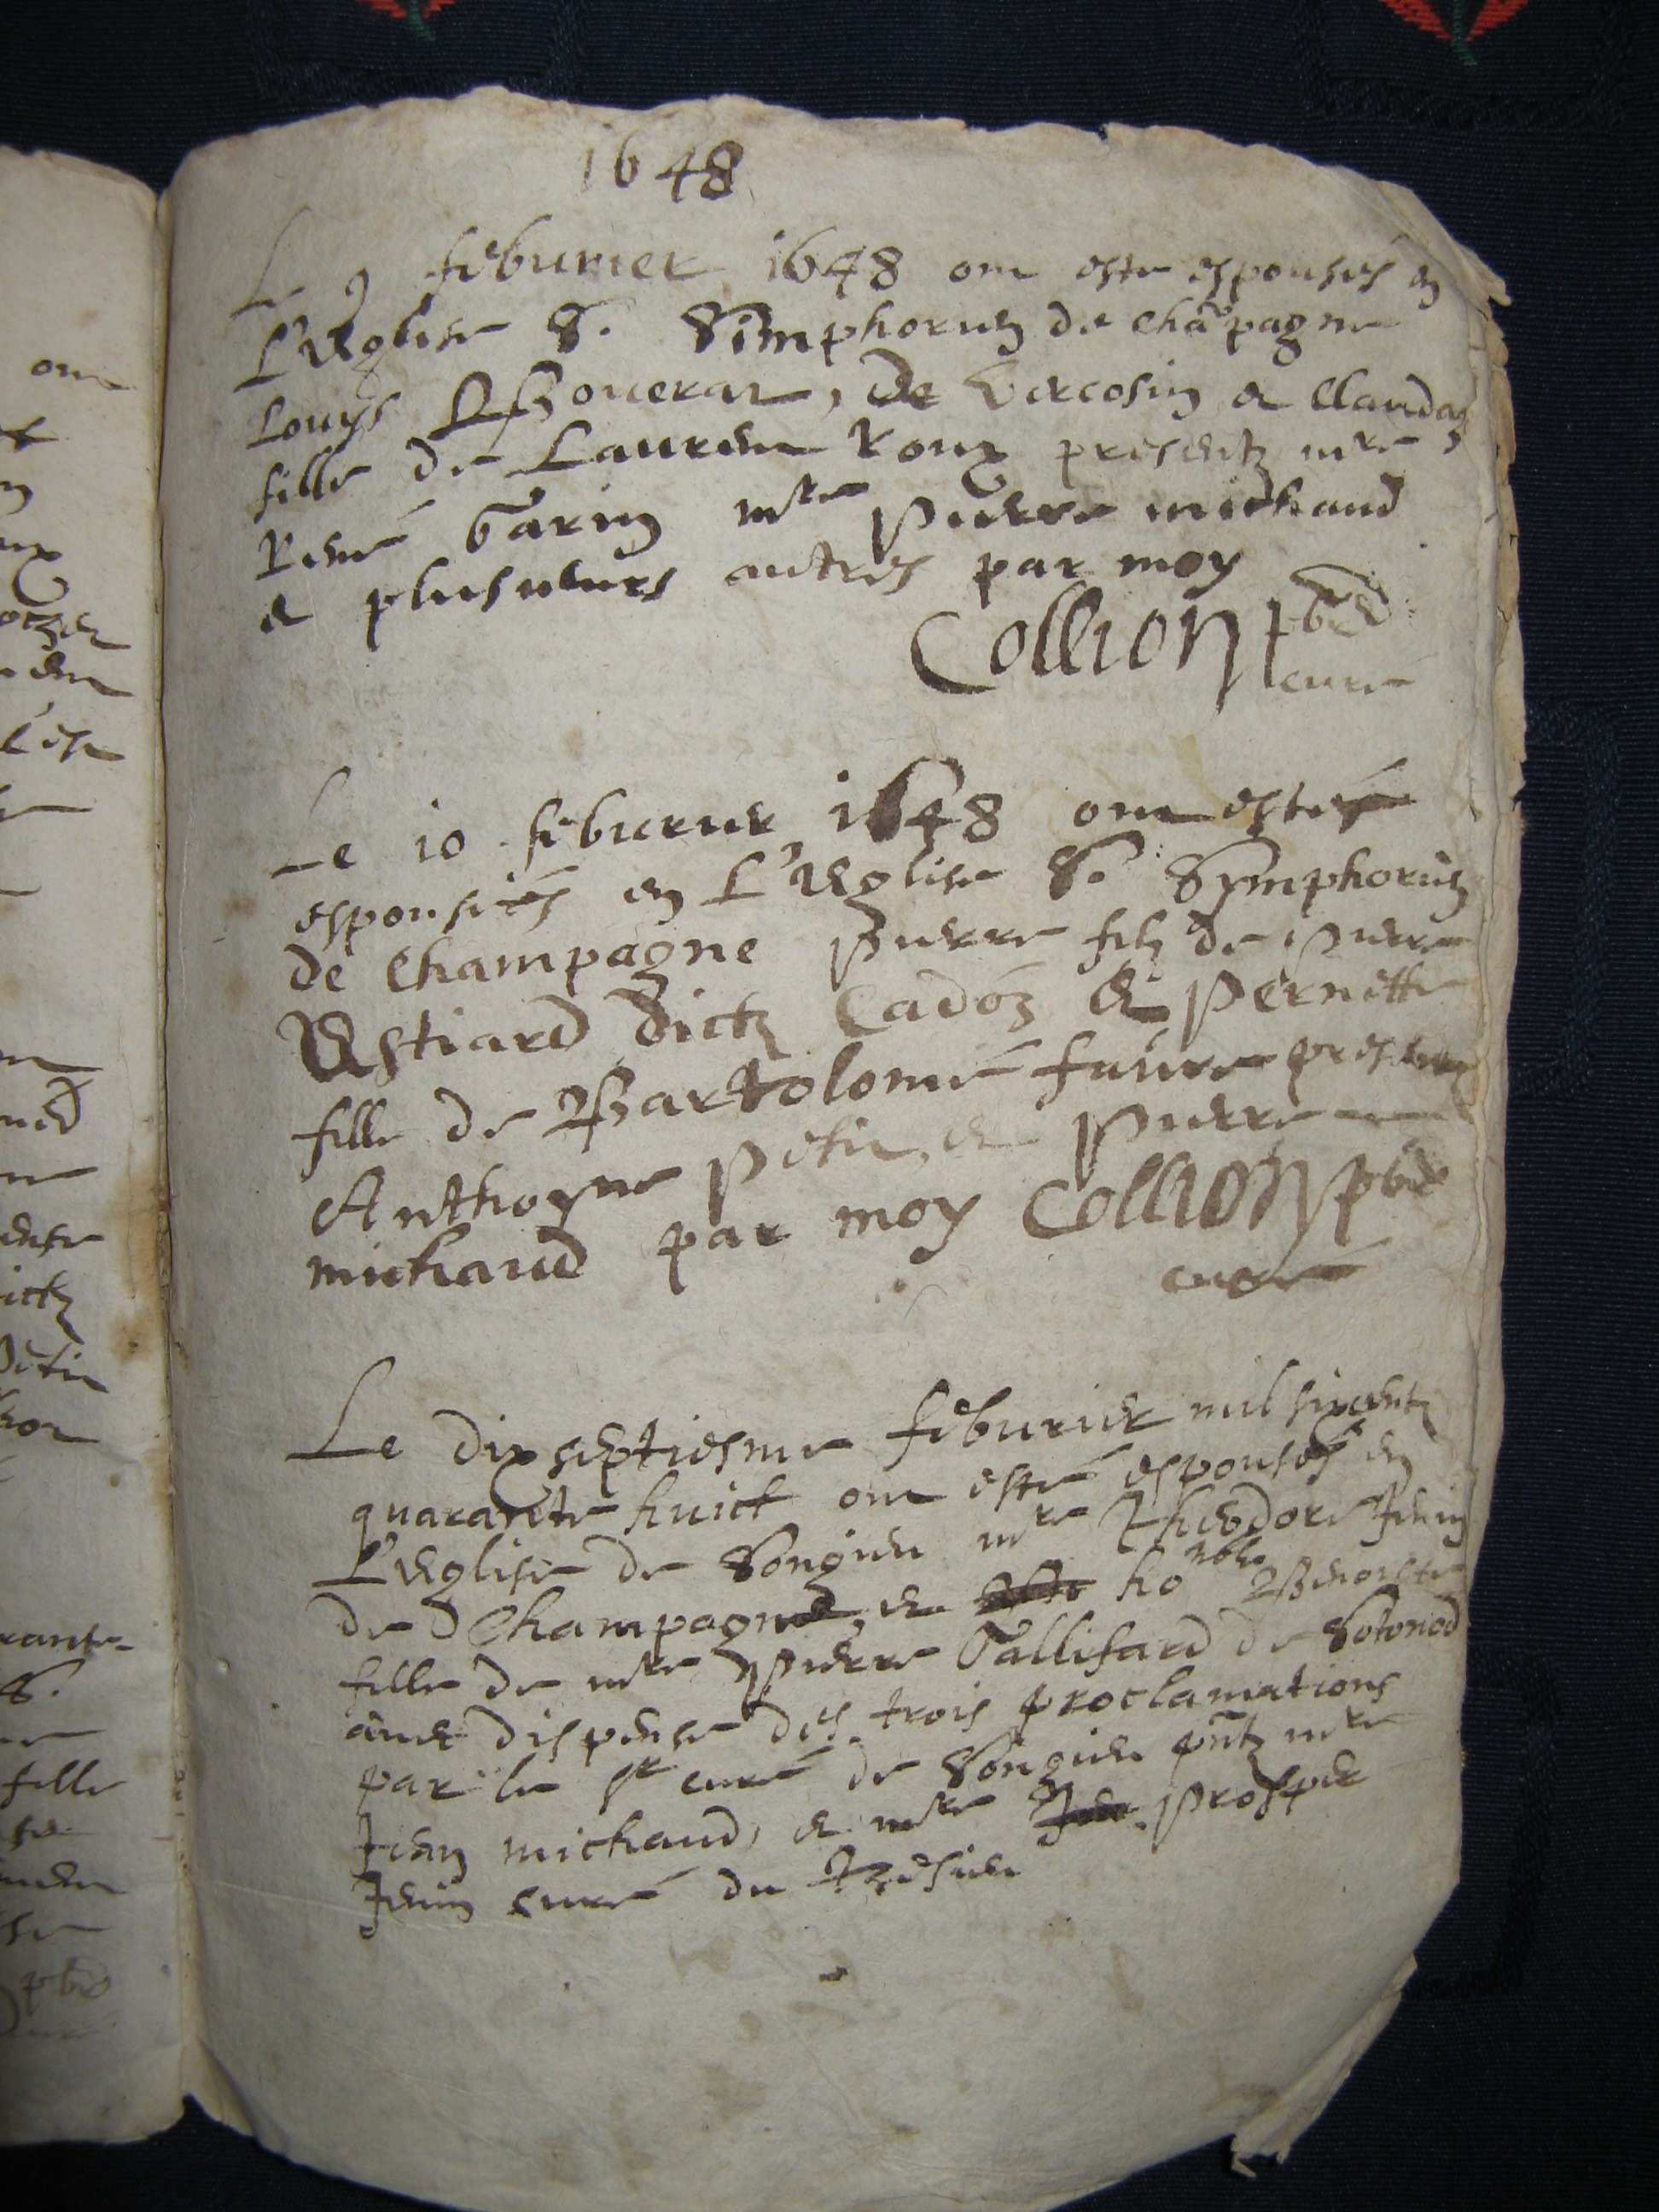 1648
Le 9 feburier 1648 ont este espousés en
L'Eglise S. Simphorien de Chãpagne
Louys Bouerat, de Vercosin et Claudaz
fille de Laurent Roux presentz mre
René Carin mre Pierre michaud
et plusieurs autres par moy
Collion pbre
curé
Le 10 feburier 1648 ont esté
espousés en L'Eglise S. Symphorien
de Champagne Pierre filz de Pierre
Estiard dictz Cadoz et Pernette
fille de Bartolomé faure presentz
Anthoyne Petit, et Pierre
michaud par moy Collion pbre
curé
Le dix septiesme feburier mil sixcentz
quarante huict ont esté espousés en
L'Eglise de Songieu mre Theodore Jenin
de Champagne, et honble Benoiste
fille de mre Pierre Tallifard de Sotonod
auec dispense des trois proclamations
par le sr curé de Songieu pntz mre
Jean michaud, et mre Prosper
Jenin curé du
om
fille
rante
S.
ictz
Petit
pbre